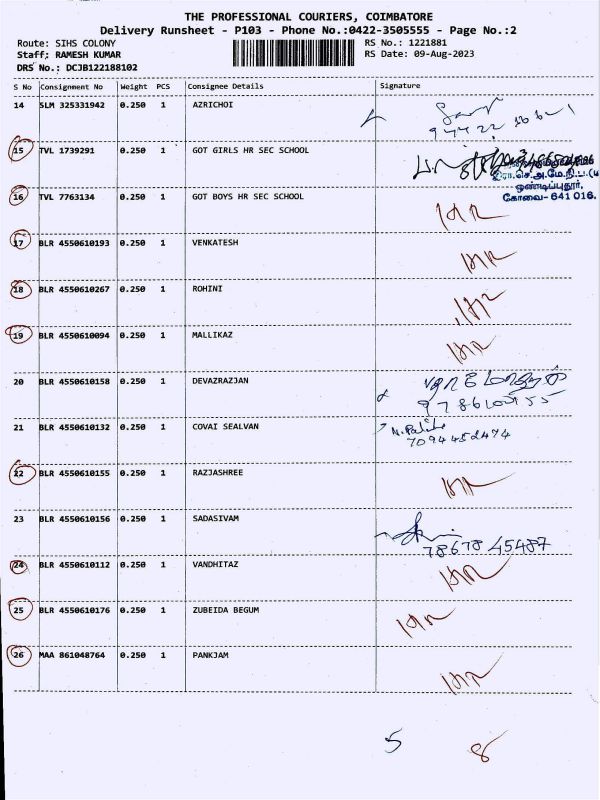 THE PROFESSIONAL COURIERS, COIMBATORE
Delivery Runsheet - P103 - Phone No.:0422-3505555 - Page No.:2
Route: SIHS COLONY
Staff; RAMESH KUMAR
DRS No.: DCJB122188102
RS No.: 1221881
RS Date: 09-Aug-2023
S No Consignment No Weight PCS Consignee Details Signature
14 SLM 325331942 0.250 1 AZRICHOI
15 TVL 1739291 0.250 1 GOT GIRLS HR SEC SCHOOL
16 TVL 7763134 0.250 1 GOT BOYS HR SEC SCHOOL
ஒண்டிப்புதூர்,
கோவை- 641 016.
17 BLR 4550610193 0.250 1 VENKATESH
18 BLR 4550610267 0.250 1 ROHINI
19 BLR 4550610094 0.250 1 MALLIKAZ
20 BLR 4550610158 0.250 1 DEVAZRAZJAN
21 BLR 4550610132 0.250 1 COVAI SEALVAN
7094452474
22 BLR 4550610155 0.250 1 RAZJASHREE
23 BLR 4550610156 0.250 1 SADASIVAM
78678 45487
24 BLR 4550610112 0.250 1 VANDHITAZ
25 BLR 4550610176 0.250 1 ZUBEIDA BEGUM
26 MAA 861048764 0.250 1 PANKJAM
5 8